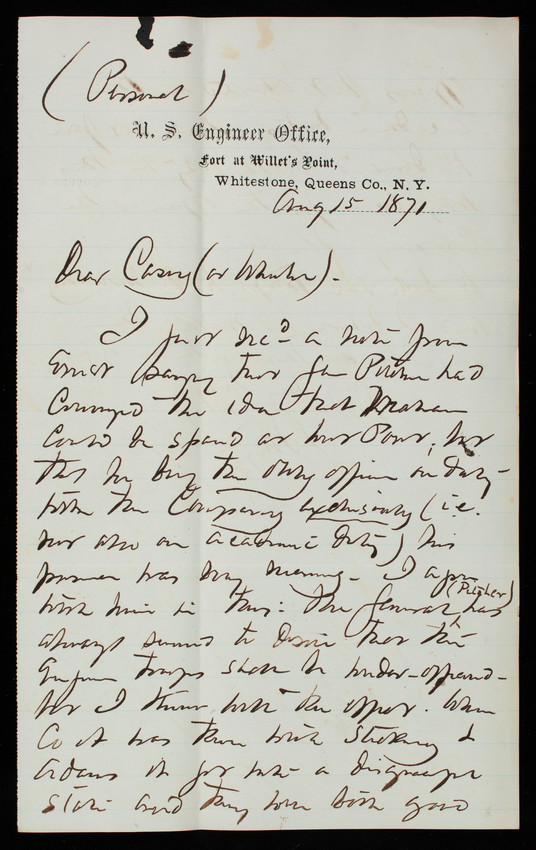 (Personal)
U. S. Engineer Office,
Fort at Willet's Point,
Whitestone, Queens Co., N. Y.
Aug 15 1871
Dear Casey (or Wheeler).
I just recd a note from
Ernst saying that Gen Pitcher had
conveyed the idea that Mahan
could be spared at West Point, but
that he being the only officer on duty
with the Company exclusively (i.e.
not also on academic duty) his
presence was very necessary. I agree
with him in this: The General (Pitcher) has
always seemed to desire that the
Engineer troops should be under-officered
for I know not the object. When
Co A was there with &
Adams it got into a disgraceful
state and they were both good